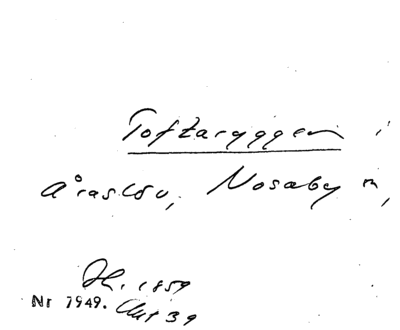 Toftaryggen i
Åraslöv, Nosaby m,
1859
Nr 7949. Akt 39